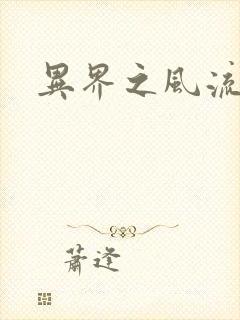 異界之風流
蕭逢